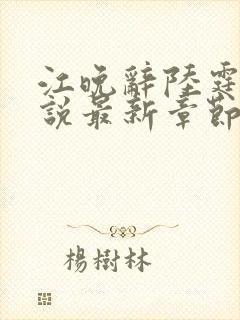 江晚辭陸霆
說最新章節
楊樹林